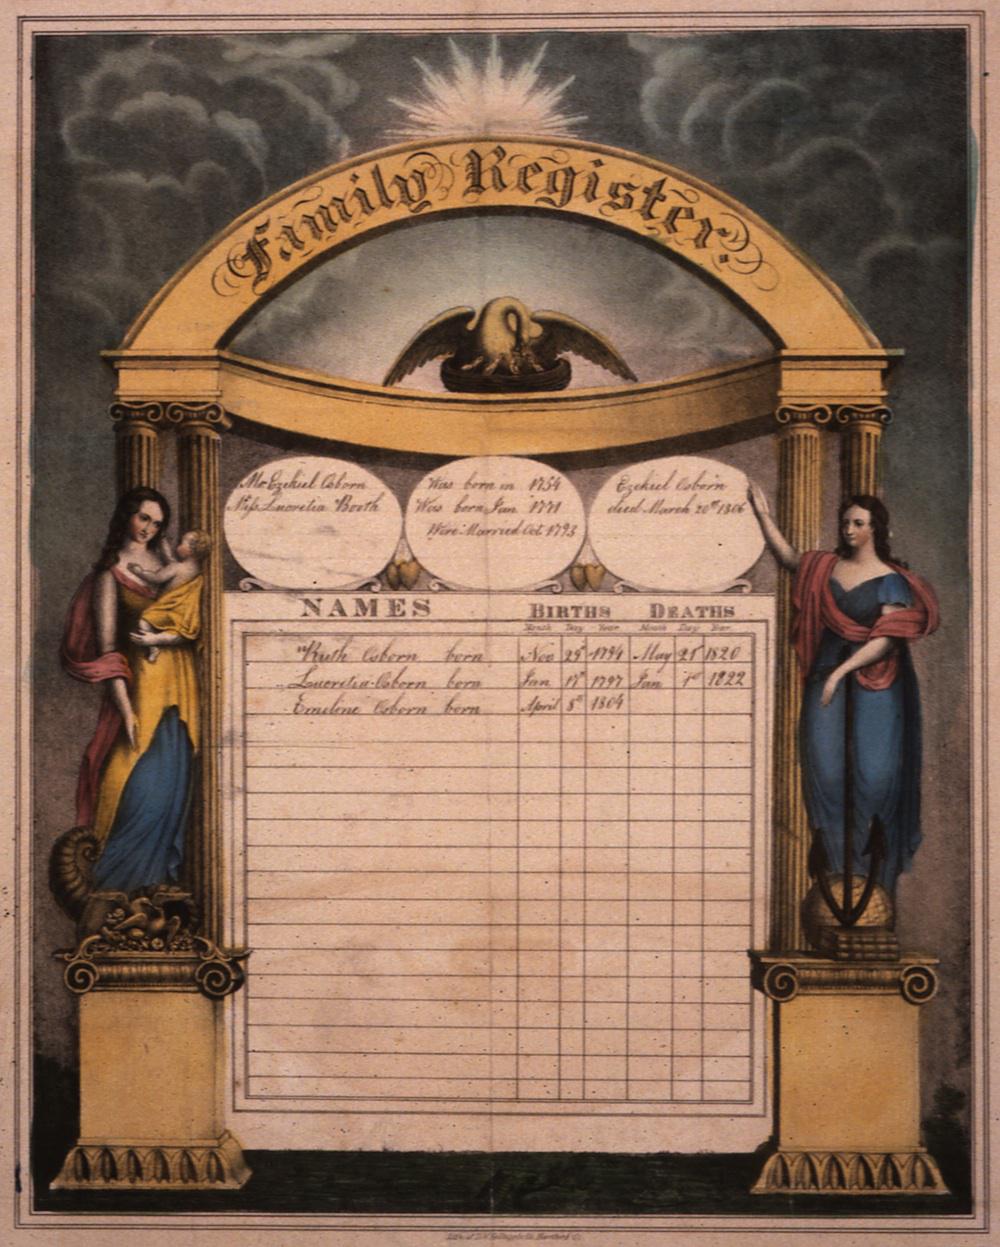 Family Register.
Mr Ezekiel Osborn
Miss Lucretia Booth
Was born in 1754
Was born Jan 1771
Were Married Oct 1793
Ezekiel Osborn
died March 20th 1806
NAMES BIRTHS DEATHS
Month Day Year Month Day Year
Ruth Osborn born Nov 29th 1794 May 21st 1820
Lucretia Osborn born Jan 17th 1797 Jan 1st 1822
Emeline Osborn born April 8th 1804
Lith. of D.W. Kellogg & Co. Hartford Ct.